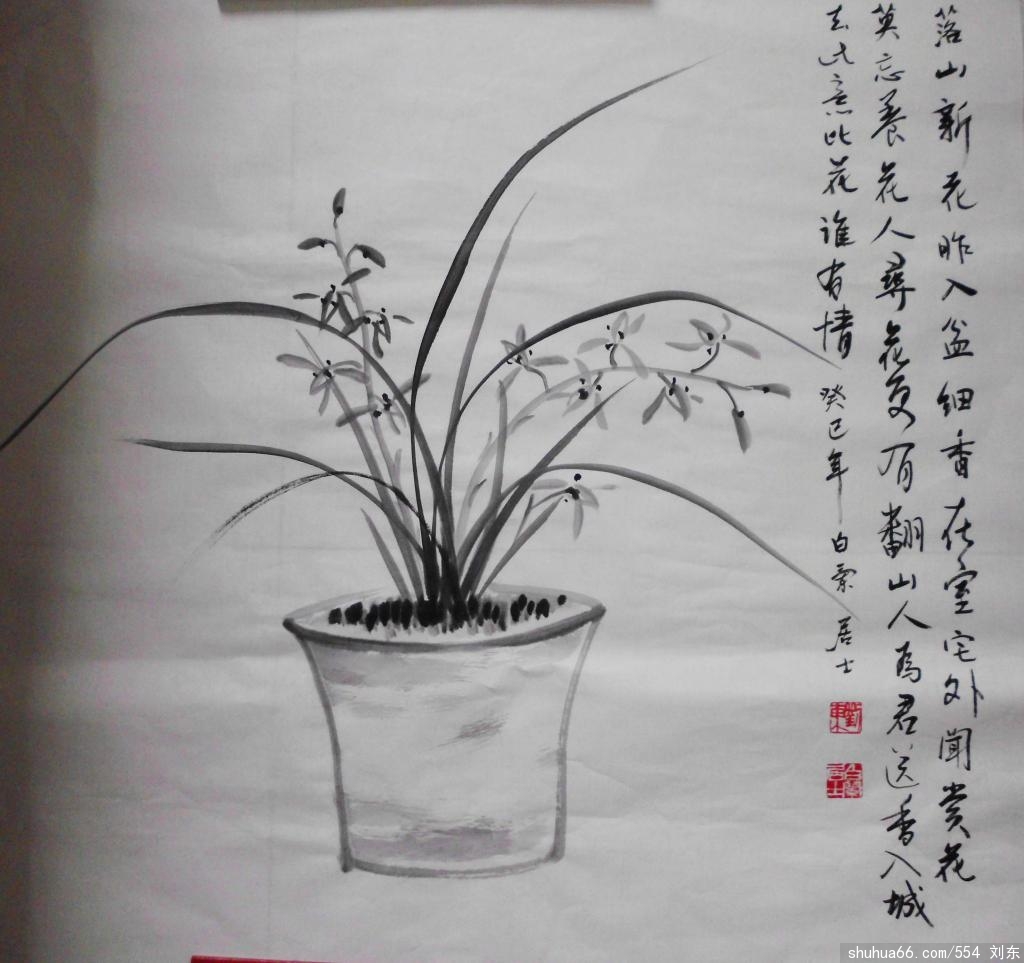 落山新花昨入盆细香在室宅外闻赏花
莫忘養花人尋花更有翻山人為君送香入城
去此意比花谁有情
癸巳年 白雲居士
劉東
shuhua66.com/554 刘东